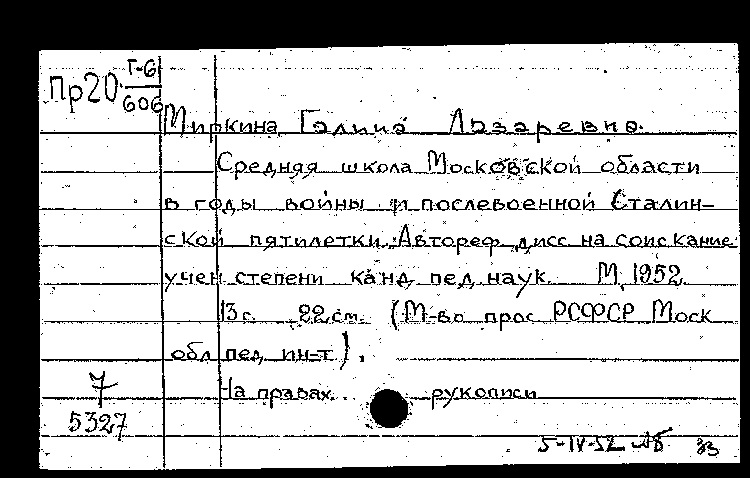 Пр20 Г-6/606
Миркина Галина Лазаревна.
Средняя школа Московской области
в годы войны и послевоенной Сталин-
ской пятилетки. Автореф. дисс. на соискание
учен степени канд пед. наук. М, 1952
13 с. 22 см. (М-во прос РСФСР Моск
обл пед ин-т).
На правах рукописи
7
5327
5-IV-52